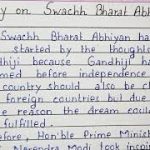 y on Swachh Bharat Abh
Swachh Bharat Abhiyan ha
started by the thoughts
dhiji because Gandhiji ha
med before independence
country should also be cl
foreign countries but due
e reason the dream could
fulfilled.
efore, Hon'ble Prime Minist
Narendra Modi took inspir